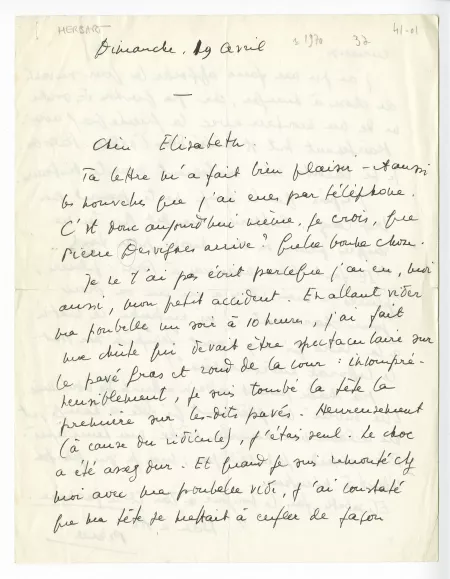 HERBART
Dimanche, 19 avril
s 1970
37
41-01
—
Chère Elisabeth
Ta lettre m'a fait bien plaisir - Aussi
les nouvelles que j'ai eues par téléphone.
C'est donc aujourd'hui même, je crois, que
Pierre Desvignes arrive ? Quelle bonne chose.
Je ne t'ai pas écrit parce que j'ai eu, moi
aussi, mon petit accident. En allant vider
ma poubelle un soir à 10 heures, j'ai fait
une chute qui devait être spectaculaire sur
le pavé gras et rond de la cour : incompré-
hensiblement, je suis tombé la tête la
première sur les-dits pavés. Heureusement
(à cause du ridicule), j'étais seul. Le choc
a été assez dur. Et quand je suis remonté chz
moi avec ma poubelle vide, j'ai constaté
que ma tête se mettait à enfler de façon